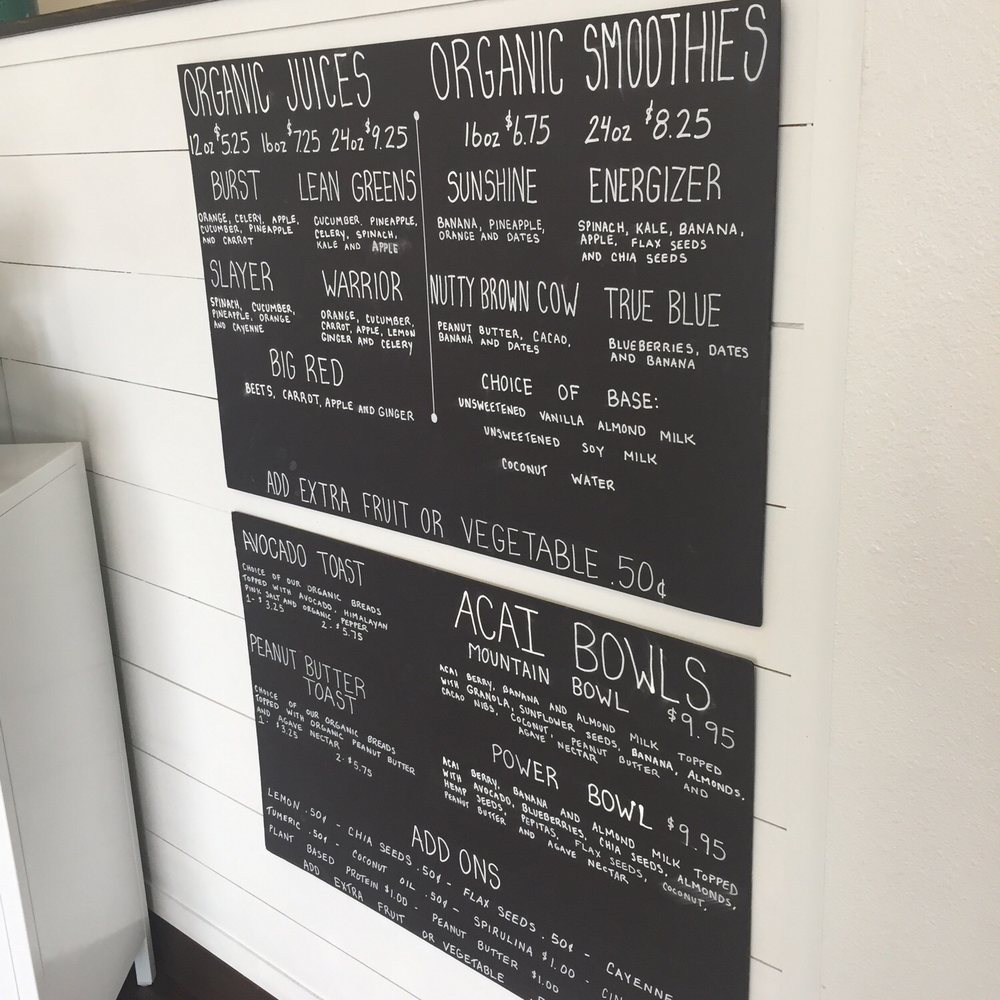 ORGANIC JUICES
12oz $5.25 16oz $7.25 24oz $9.25
BURST
ORANGE, CELERY, APPLE,
CUCUMBER, PINEAPPLE
AND CARROT
LEAN GREENS
CUCUMBER, PINEAPPLE,
CELERY, SPINACH,
KALE AND APPLE
SLAYER
SPINACH, CUCUMBER,
PINEAPPLE, ORANGE
AND CAYENNE
WARRIOR
ORANGE, CUCUMBER,
CARROT, APPLE, LEMON
GINGER AND CELERY
BIG RED
BEETS, CARROT, APPLE AND GINGER
ORGANIC SMOOTHIES
16oz $6.75 24oz $8.25
SUNSHINE
BANANA, PINEAPPLE,
ORANGE AND DATES
ENERGIZER
SPINACH, KALE, BANANA,
APPLE, FLAX SEEDS
AND CHIA SEEDS
NUTTY BROWN COW
PEANUT BUTTER, CACAO,
BANANA AND DATES
TRUE BLUE
BLUEBERRIES, DATES
AND BANANA
CHOICE OF BASE:
UNSWEETENED VANILLA ALMOND MILK
UNSWEETENED SOY MILK
COCONUT WATER
ADD EXTRA FRUIT OR VEGETABLE .50¢
AVOCADO TOAST
CHOICE OF OUR ORGANIC BREADS
TOPPED WITH AVOCADO, HIMALAYAN
PINK SALT AND ORGANIC PEPPER
1- $3.25 2- $5.75
PEANUT BUTTER
TOAST
CHOICE OF OUR ORGANIC BREADS
TOPPED WITH ORGANIC PEANUT BUTTER
AND AGAVE NECTAR
1- $3.25 2- $5.75
ACAI BOWLS
MOUNTAIN BOWL $9.95
ACAI BERRY, BANANA AND ALMOND MILK TOPPED
WITH GRANOLA, SUNFLOWER SEEDS, BANANA, ALMONDS,
CACAO NIBS, COCONUT, PEANUT BUTTER AND
AGAVE NECTAR
POWER BOWL $9.95
ACAI BERRY, BANANA AND ALMOND MILK TOPPED
WITH AVOCADO, BLUEBERRIES, CHIA SEEDS, ALMONDS,
HEMP SEEDS, PEPITAS, FLAX SEEDS, COCONUT,
PEANUT BUTTER AND AGAVE NECTAR
ADD ONS
LEMON .50¢ - CHIA SEEDS .50¢ - FLAX SEEDS .50¢ - CAYENNE
TUMERIC .50¢ - COCONUT OIL .50¢ - SPIRULINA $1.00 - CIN
PLANT BASED PROTEIN $1.00 - PEANUT BUTTER $1.00
ADD EXTRA FRUIT OR VEGETABLE